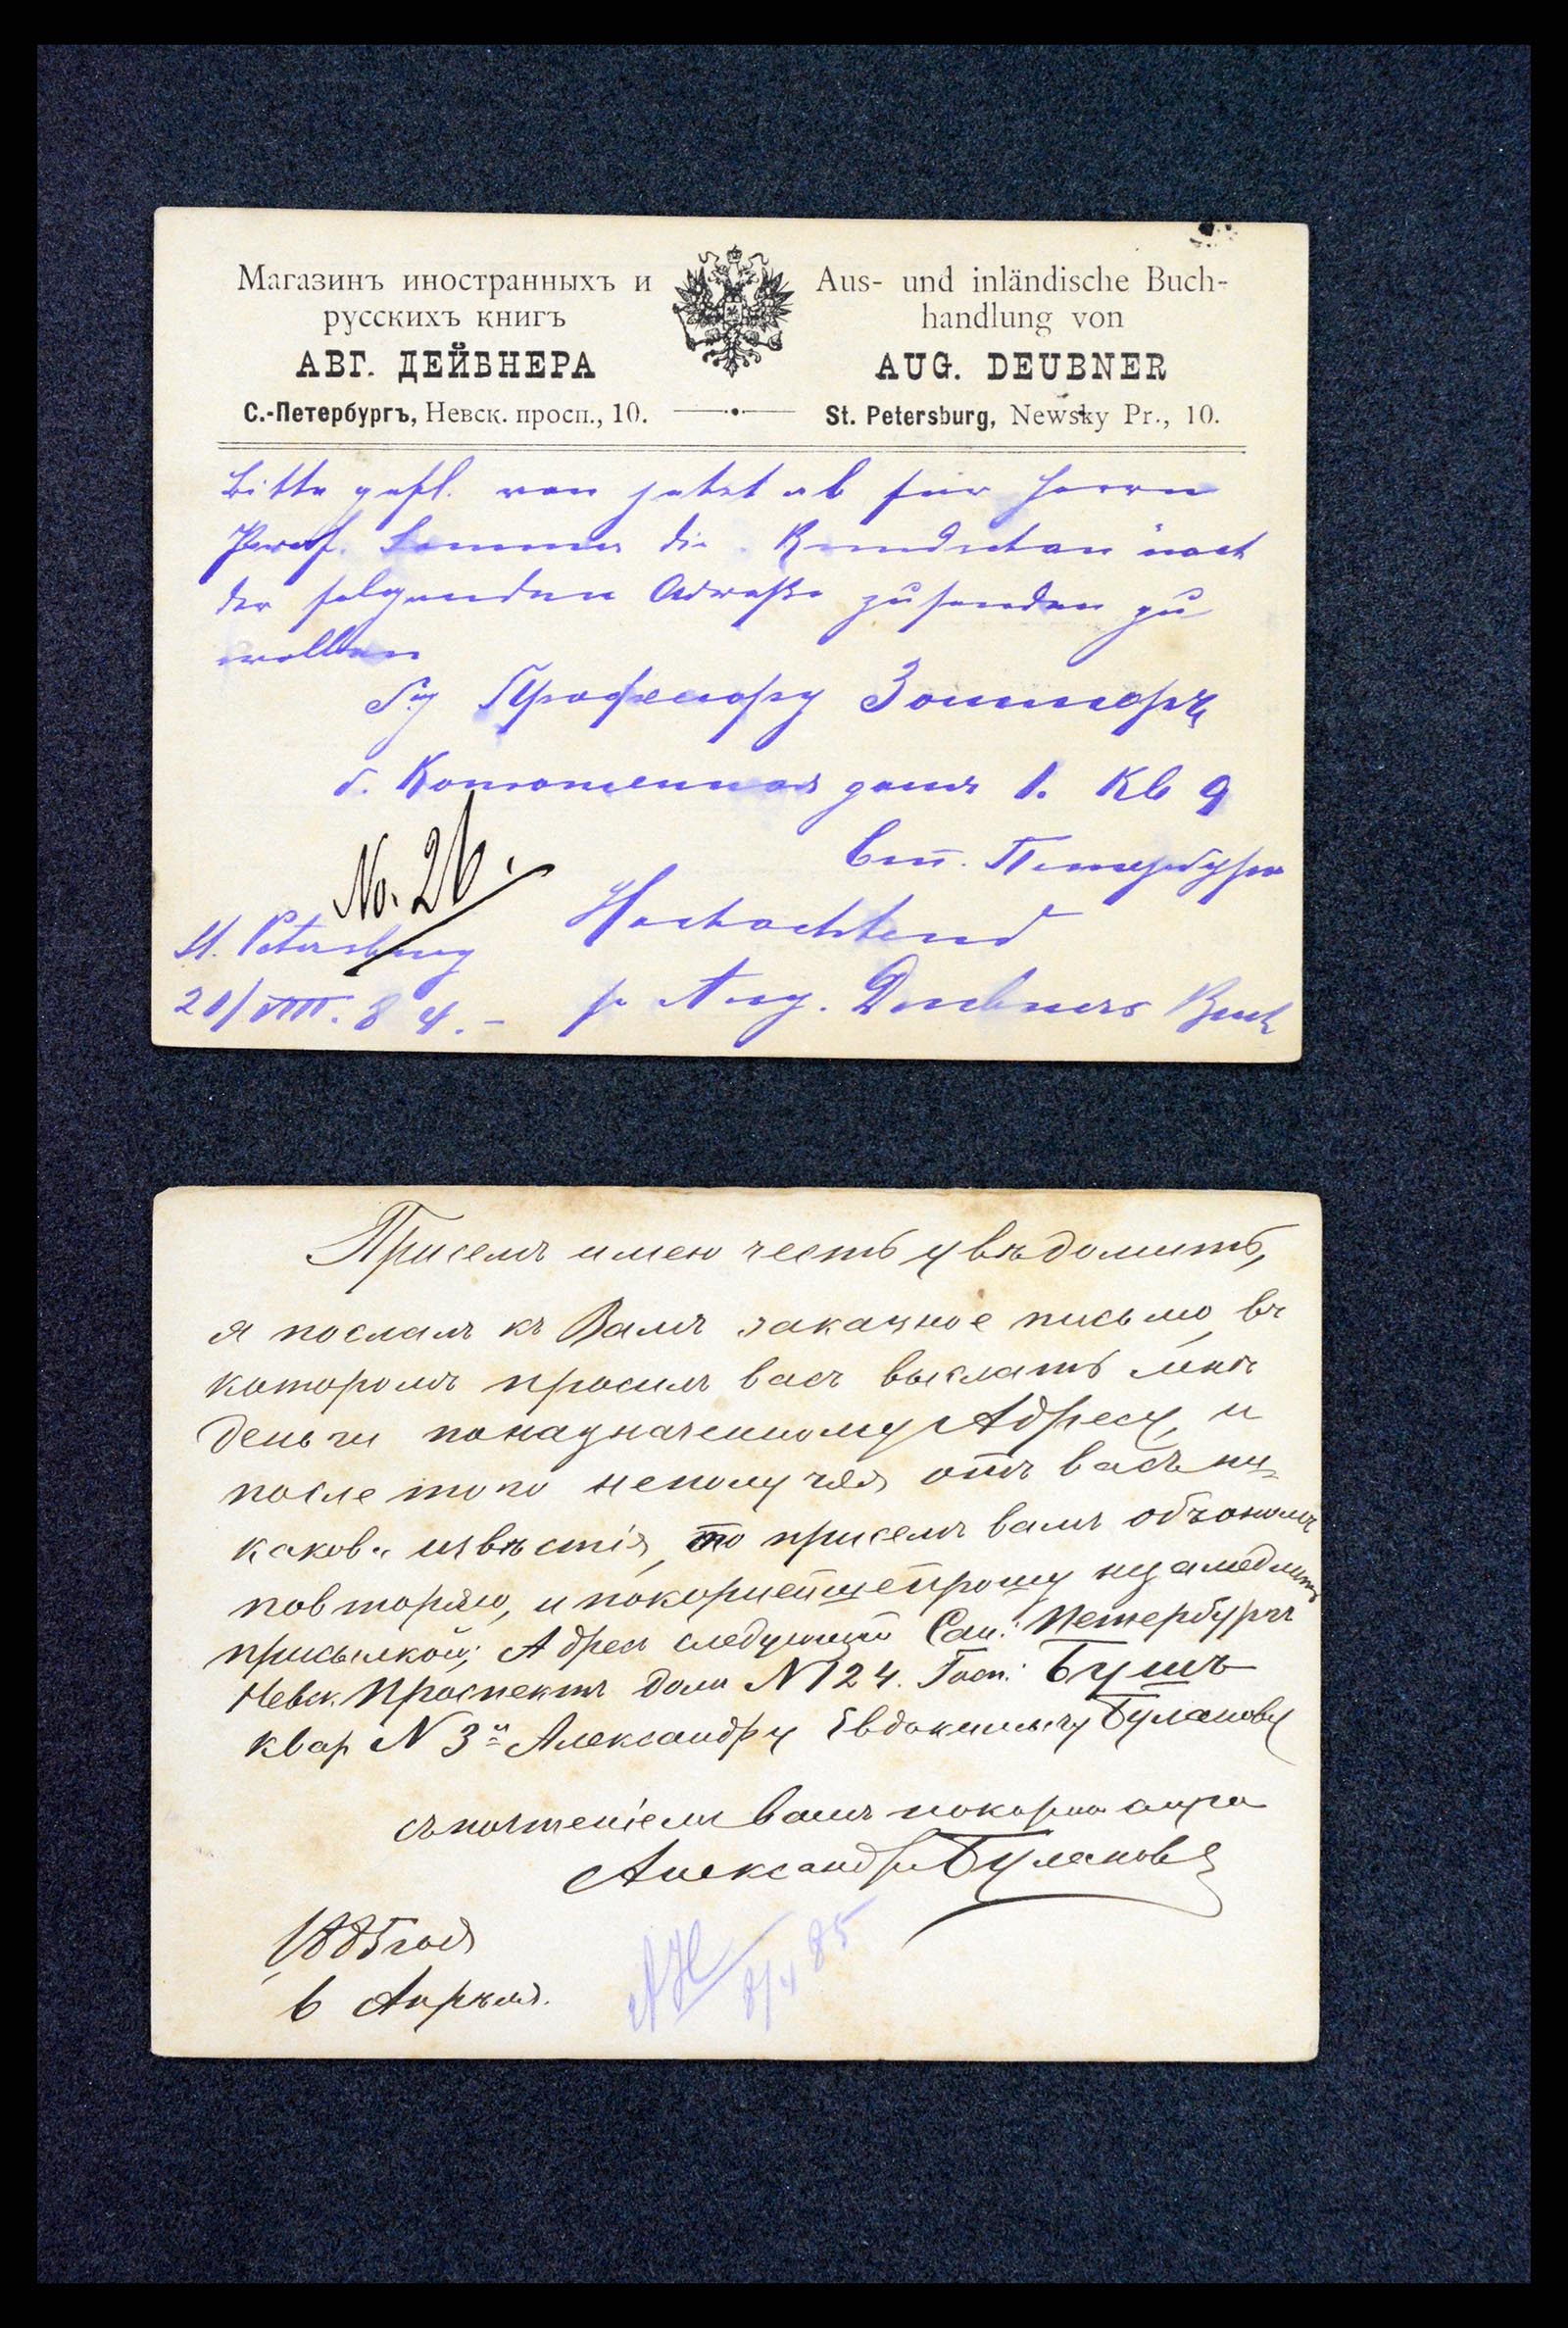 Магазинъ иностранныхъ и
русскихъ книгъ
АВГ. ДЕЙБНЕРА
С.-Петербургъ, Невск. просп., 10.
Aus- und inländische Buch-
handlung von
AUG. DEUBNER
St. Petersburg, Newsky Pr., 10.
Bitte gefl. von jetzt ab für Herrn
Prof. Sommer die Rundschau nach
der folgenden Adresse zusenden zu
wollen
Профессору Зоммеръ
б. Конюшенная домъ 1. Кв 9
Петербургъ
No. 26.
Hochachtend
St. Petersburg
p Aug. Deubners Buch
20/VIII. 84.-
Присемъ имею честь увѣдомить,
я послалъ къ Вамъ заказное письмо, въ
которомъ просилъ васъ выслать мнѣ
деньги поназначенному Адресу, и
после того неполучая отъ васъ ни-
какова извѣстія, то присемъ вамъ объономъ
повторяю, и покорнейше прошу
присылкой; Адресъ следующий Сан: Петербургъ
Невск. Проспектъ домъ N 124. Госп: Бушъ
квар N 3й Александру Евдокимычу Буланову
съ почтеніемъ вашъ покорный слуга
Александръ Булановъ
1885 года
6 Апрѣля.
8/4 85